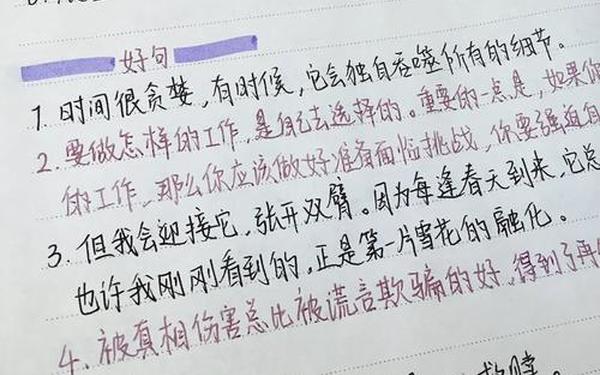 好句
1. 时间很贪婪,有时候,它会独自吞噬所有的细节。
2. 要做怎样的工作,是自己去选择的。重要的一点是,如果你
的工作,那么你应该做好准备面临挑战,你要强迫自
3. 但我会迎接它,张开双臂。因为每逢春天到来,它总
也许我刚刚看到的,正是第一片雪花的融化。
4. 被真相伤害总比被谎言欺骗的好,得到了再